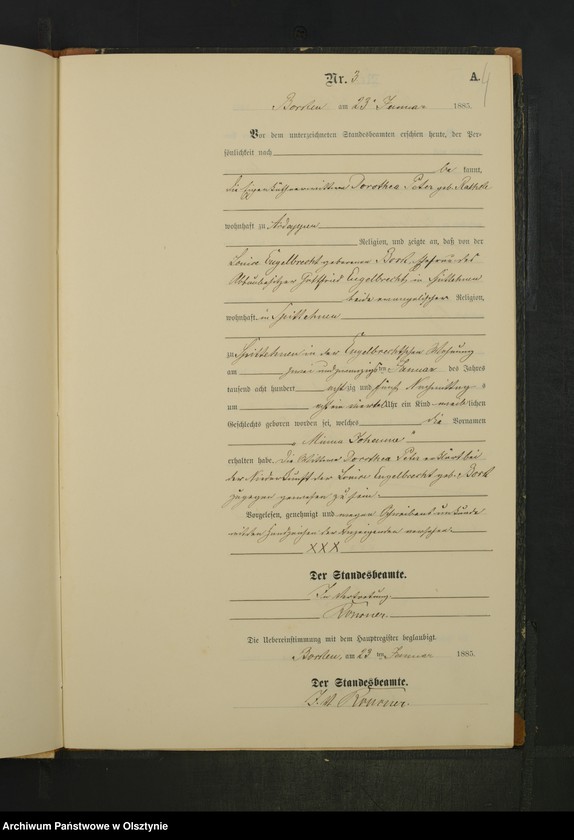 Nr. 3
A.
4
Borken am 23. Januar 1885.
Vor dem unterzeichneten Standesbeamten erschien heute, der Per-
sönlichkeit nach
be kannt,
die Dorothea Peter geb.
wohnhaft zu
Religion, und zeigte an, daß von der
Louise Engelbrecht geborener Bork, Ehefrau des
Gottfried Engelbrecht, in
beide evangelischer Religion,
wohnhaft in
zu in der Engelbrechtschen Wohnung
am zwei und zwanzigsten Januar des Jahres
tausend acht hundert achtzig und fünf Nachmittags
um Uhr ein Kind weiblichen
Geschlechts geboren worden sei, welches die Vornamen
„Minna Johanne"
erhalten habe. Die Wittwe Dorothea Peter erklärt bei
der Niederkunft der Louise Engelbrecht geb. Bork
zugegen gewesen zu sein
Vorgelesen, genehmigt und wegen Schreibensunkunde
mit den Handzeichen der Anzeigenden versehen
XXX
Der Standesbeamte.
In Vertretung
Die Uebereinstimmung mit dem Hauptregister beglaubigt.
Borken, am 23 ten Januar 1885.
Der Standesbeamte.
I. V.
Archiwum Państwowe w Olsztynie